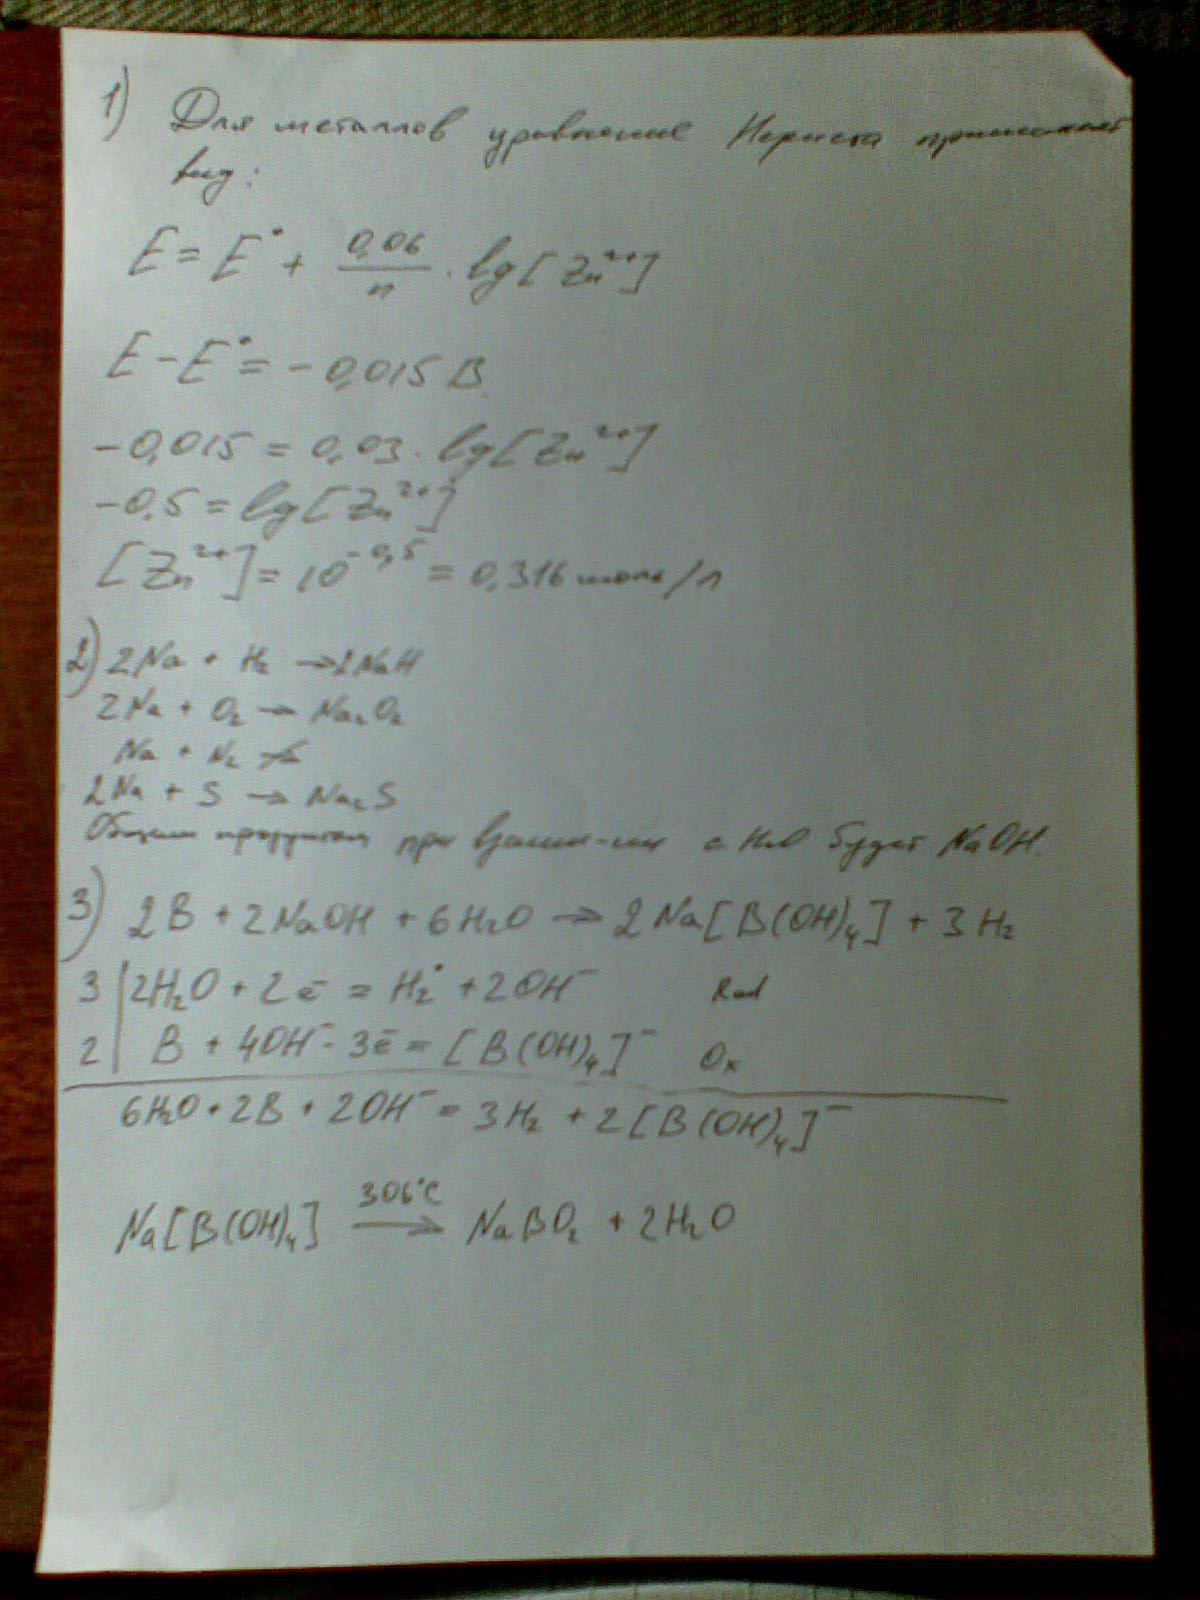 1) Для металлов уравнение Нернста принимает
вид:
E = E° + 0,06/n · lg[Zn²⁺]
E - E° = - 0,015 В
-0,015 = 0,03 · lg[Zn²⁺]
-0,5 = lg[Zn²⁺]
[Zn²⁺] = 10^-0,5 = 0,316 моль/л
2) 2Na + H₂ → 2NaH
2Na + O₂ → Na₂O₂
Na + N₂ ↛
2Na + S → Na₂S
Общим продуктом при взаим-ии с H₂O будет NaOH.
3) 2B + 2NaOH + 6H₂O → 2Na[B(OH)₄] + 3H₂
3 | 2H₂O + 2ē = H₂° + 2OH⁻ Red
2 | B + 4OH⁻ - 3ē = [B(OH)₄]⁻ Ox
6H₂O + 2B + 2OH⁻ = 3H₂ + 2[B(OH)₄]⁻
306°C
Na[B(OH)₄] → NaBO₂ + 2H₂O